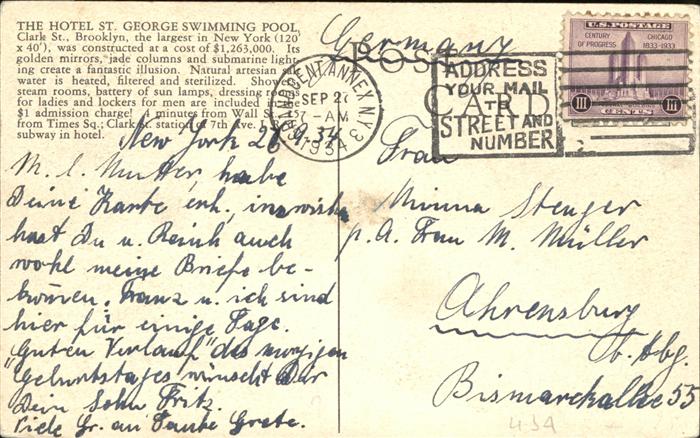 THE HOTEL ST. GEORGE SWIMMING POOL,
Clark St., Brooklyn, the largest in New York (120'
x 40'), was constructed at a cost of $1,263,000. Its
golden mirrors, jade columns and submarine light-
ing create a fantastic illusion. Natural artesian
water is heated, filtered and sterilized. Show
steam rooms, battery of sun lamps, dressing
for ladies and lockers for men are included in
$1 admission charge! minutes from Wall S
from Times Sq.; Clark St. station of 7th Ave. I.
subway in hotel.
New York 27.9.34
M. l. Mutter, habe
Deine Karte erh., inzwisch
hast Du u. Reinh auch
wohl meine Briefe be-
kommen. Franz u. ich sind
hier für einige Tage.
"Guten Verlauf" des
Geburtstages wünscht Dir
Dein Sohn Fritz.
Viele Gr. an Tante Grete.
Germany
POST CARD
ANNEX N.Y.
SEP 27
7-AM
1934
ADDRESS
YOUR MAIL
TO
STREET AND
NUMBER
U.S. POSTAGE
CENTURY OF PROGRESS
CHICAGO 1833-1933
III III
CENTS
Frau
Minna Stenger
p. A. Frau M. Müller
Ahrensburg
b. Hbg.
Bismarckallee 55
434